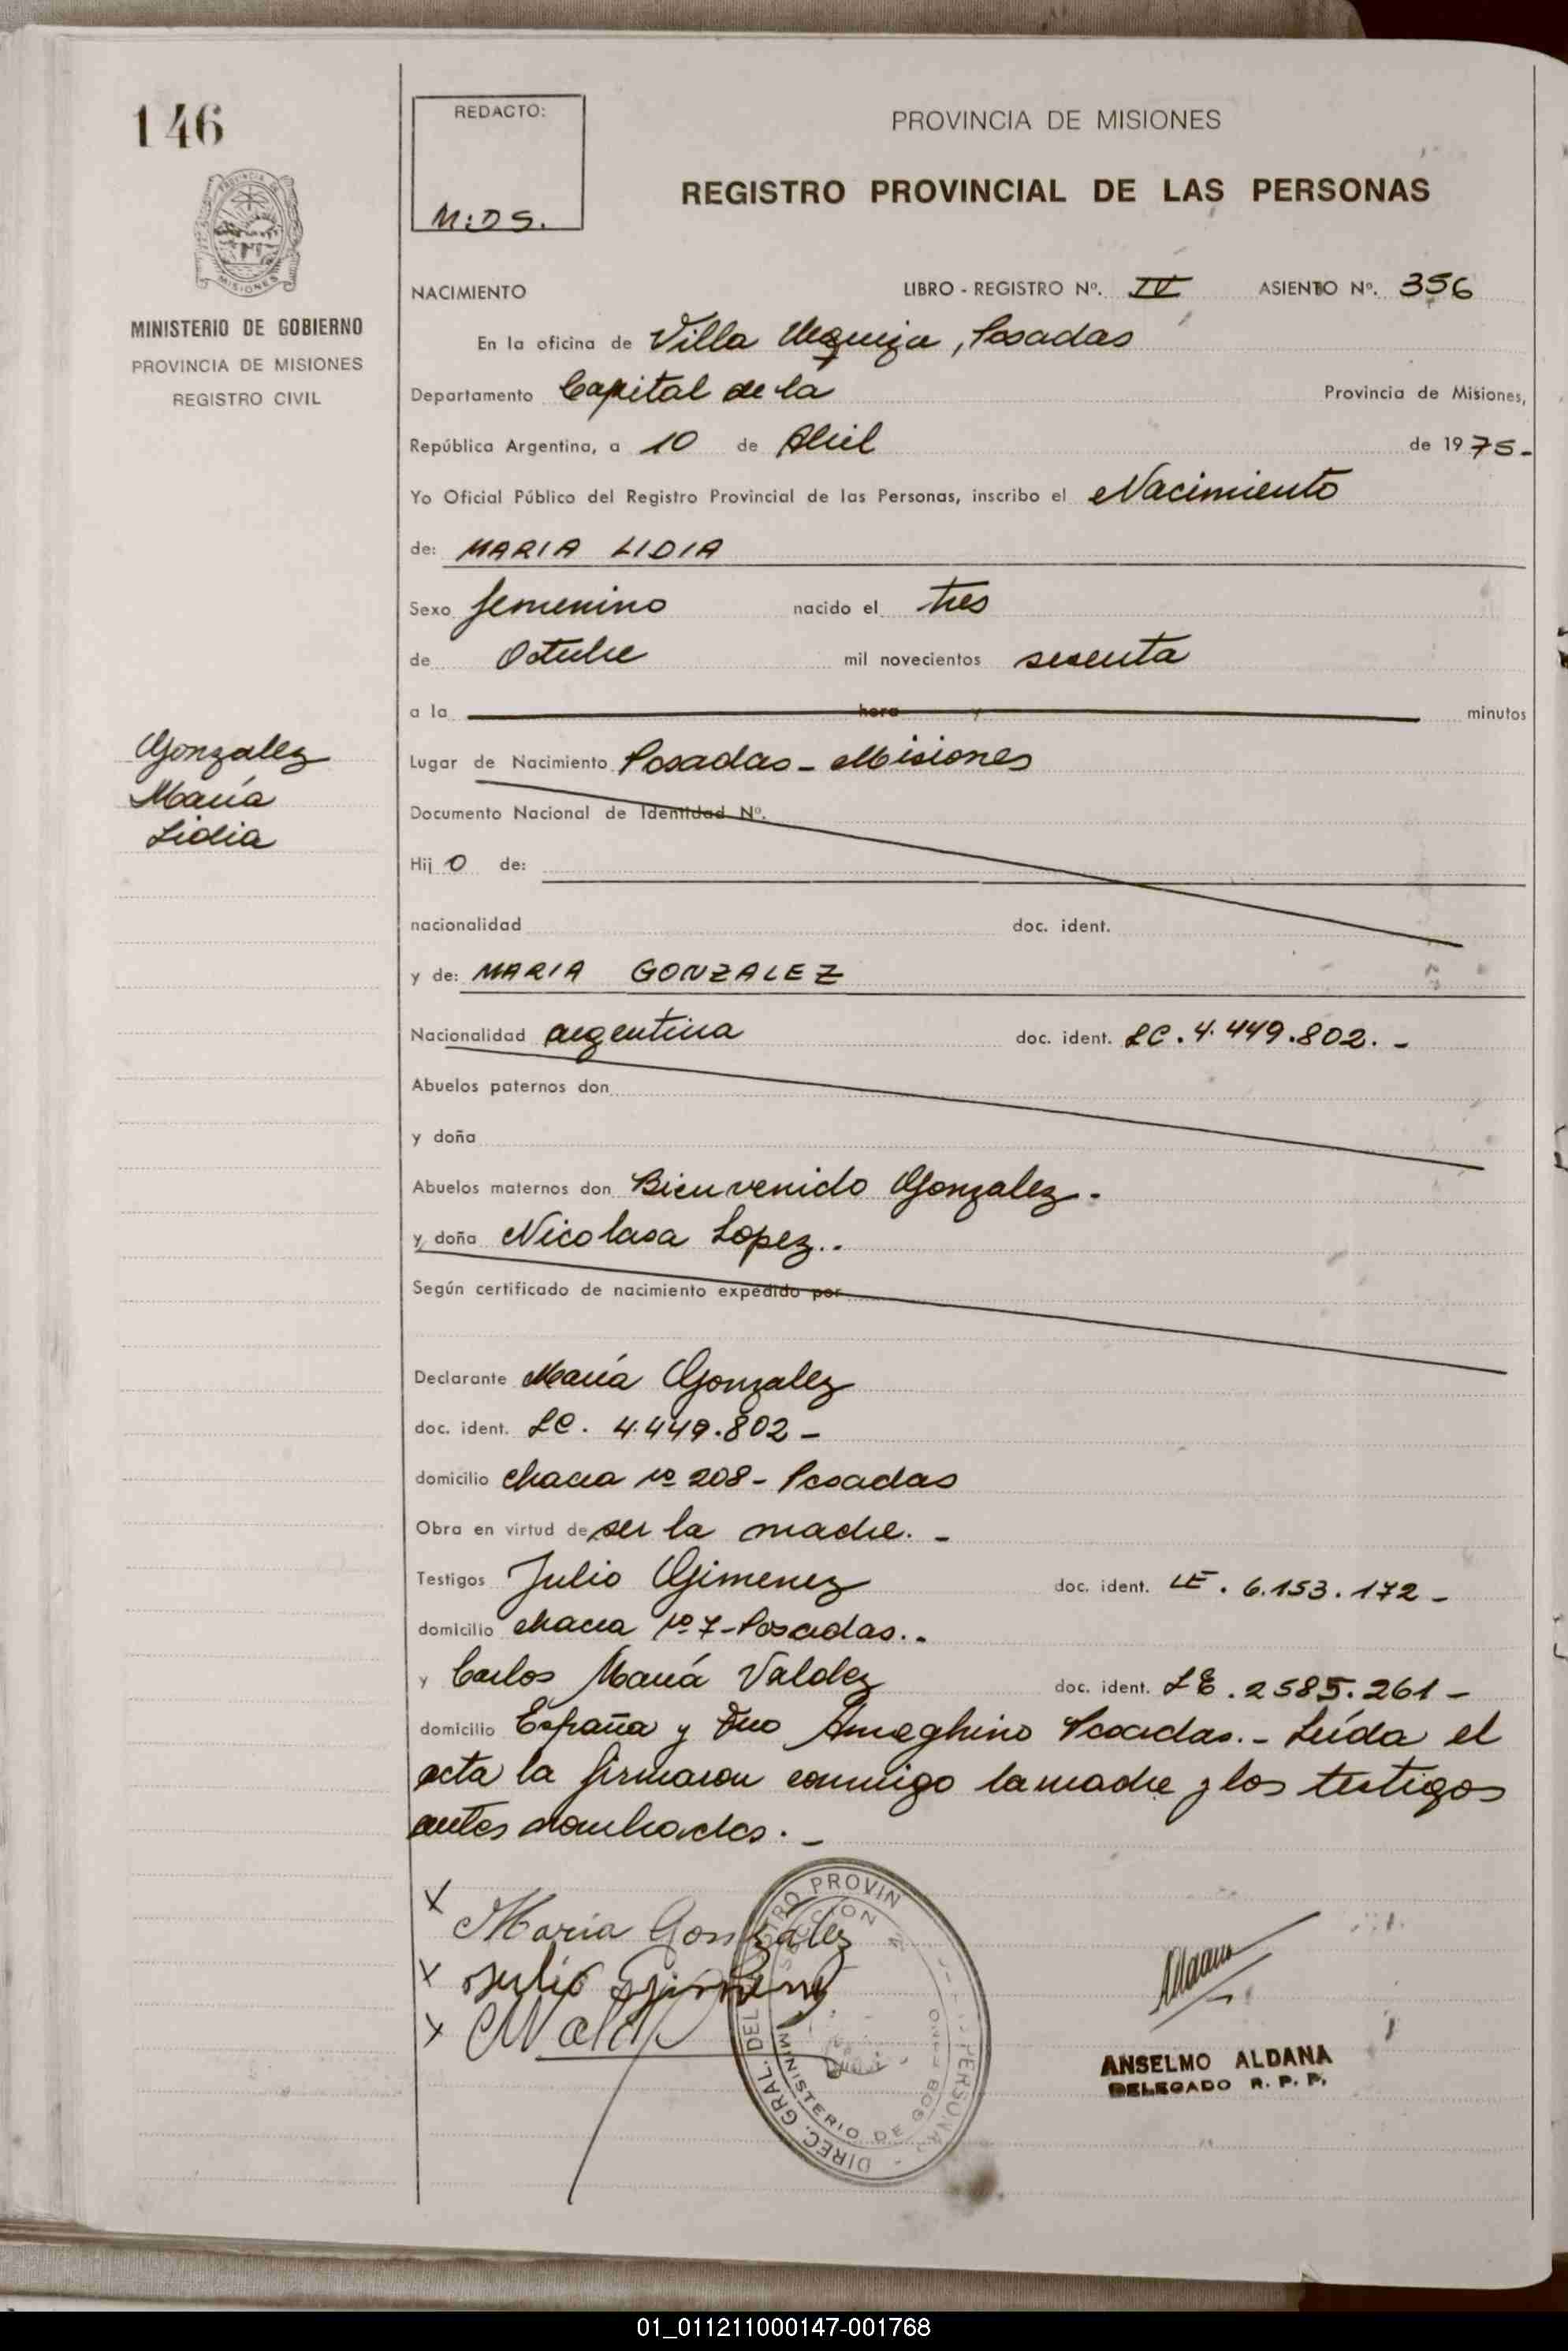 146
PROVINCIA DE
MISIONES
MINISTERIO DE GOBIERNO
PROVINCIA DE MISIONES
REGISTRO CIVIL
Gonzalez
María
Lidia
REDACTO:
M:DS.
PROVINCIA DE MISIONES
REGISTRO PROVINCIAL DE LAS PERSONAS
NACIMIENTO LIBRO - REGISTRO Nº. IV ASIENTO Nº. 356
En la oficina de Villa Urquiza, Posadas
Departamento Capital de la Provincia de Misiones,
República Argentina, a 10 de Abril de 1975-
Yo Oficial Público del Registro Provincial de las Personas, inscribo el Nacimiento
de: MARIA LIDIA
Sexo femenino nacido el tres
de Octubre mil novecientos sesenta
a la hora y minutos
Lugar de Nacimiento Posadas - Misiones
Documento Nacional de Identidad Nº.
Hij o de:
nacionalidad doc. ident.
y de: MARIA GONZALEZ
Nacionalidad argentina doc. ident. LC. 4.449.802. -
Abuelos paternos don
y doña
Abuelos maternos don Bienvenido Gonzalez.
y doña Nicolasa Lopez..
Según certificado de nacimiento expedido por
Declarante María Gonzalez
doc. ident. LC. 4.449.802 -
domicilio chacra nº 208 - Posadas
Obra en virtud de ser la madre. -
Testigos Julio Gimenez doc. ident. LE. 6.153.172 -
domicilio chacra nº 7 - Posadas..
y Carlos María Valdez doc. ident. LE. 2585.261 -
domicilio España y Ameghino Posadas.- Leída el
acta la firmaron conmigo la madre y los testigos
antes nombrados. -
X María Gonzalez
X Julio Gimenez
X
DIREC. GRAL. DEL PROVIN PERSONAS
MINISTERIO DE GOBIERNO
ANSELMO ALDANA
DELEGADO R. P. P.
01_011211000147-001768